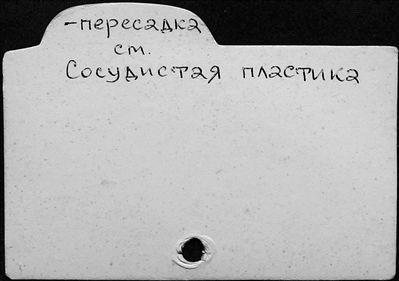 -пересадка
см.
Сосудистая пластика